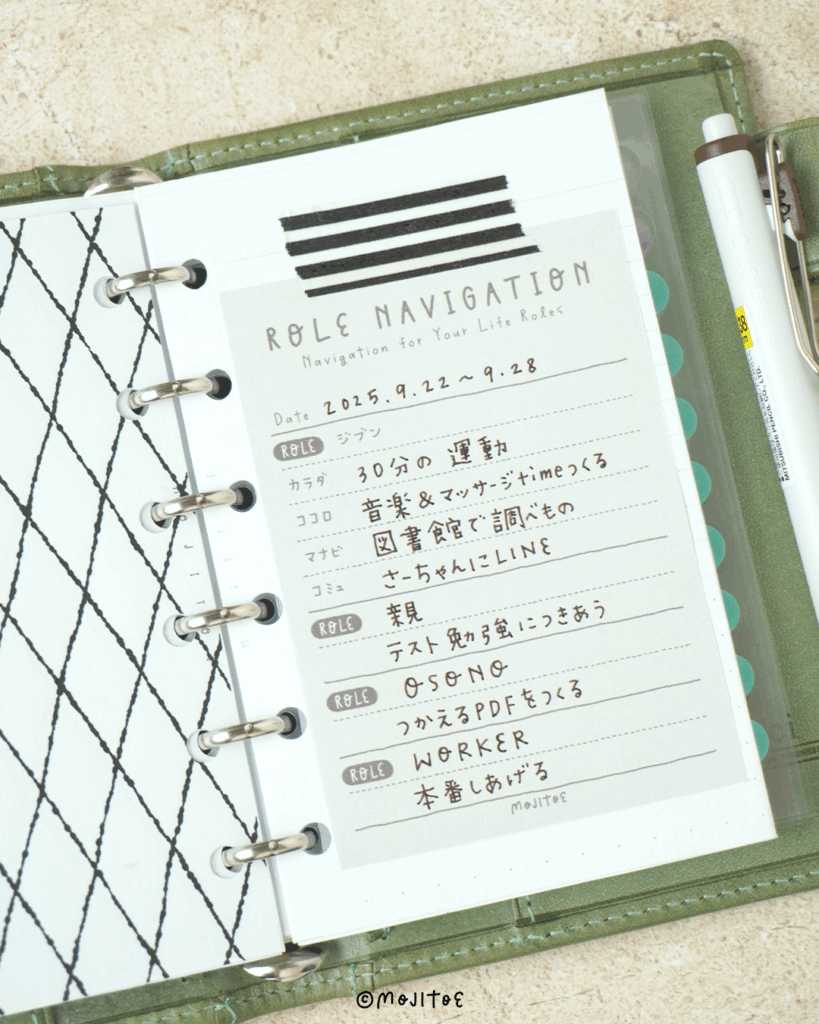 ROLE NAVIGATION
Navigation for Your Life Roles
Date 2025.9.22〜9.28
ROLE ジブン
カラダ 30分の運動
ココロ 音楽&マッサージtimeつくる
マナビ 図書館で調べもの
コミュ さーちゃんにLINE
ROLE 親
テスト勉強につきあう
ROLE OSONO
つかえるPDFをつくる
ROLE WORKER
本番しあげる
MOJITOE
MITSUBISHI PENCIL CO., LTD.
©MOJITOE